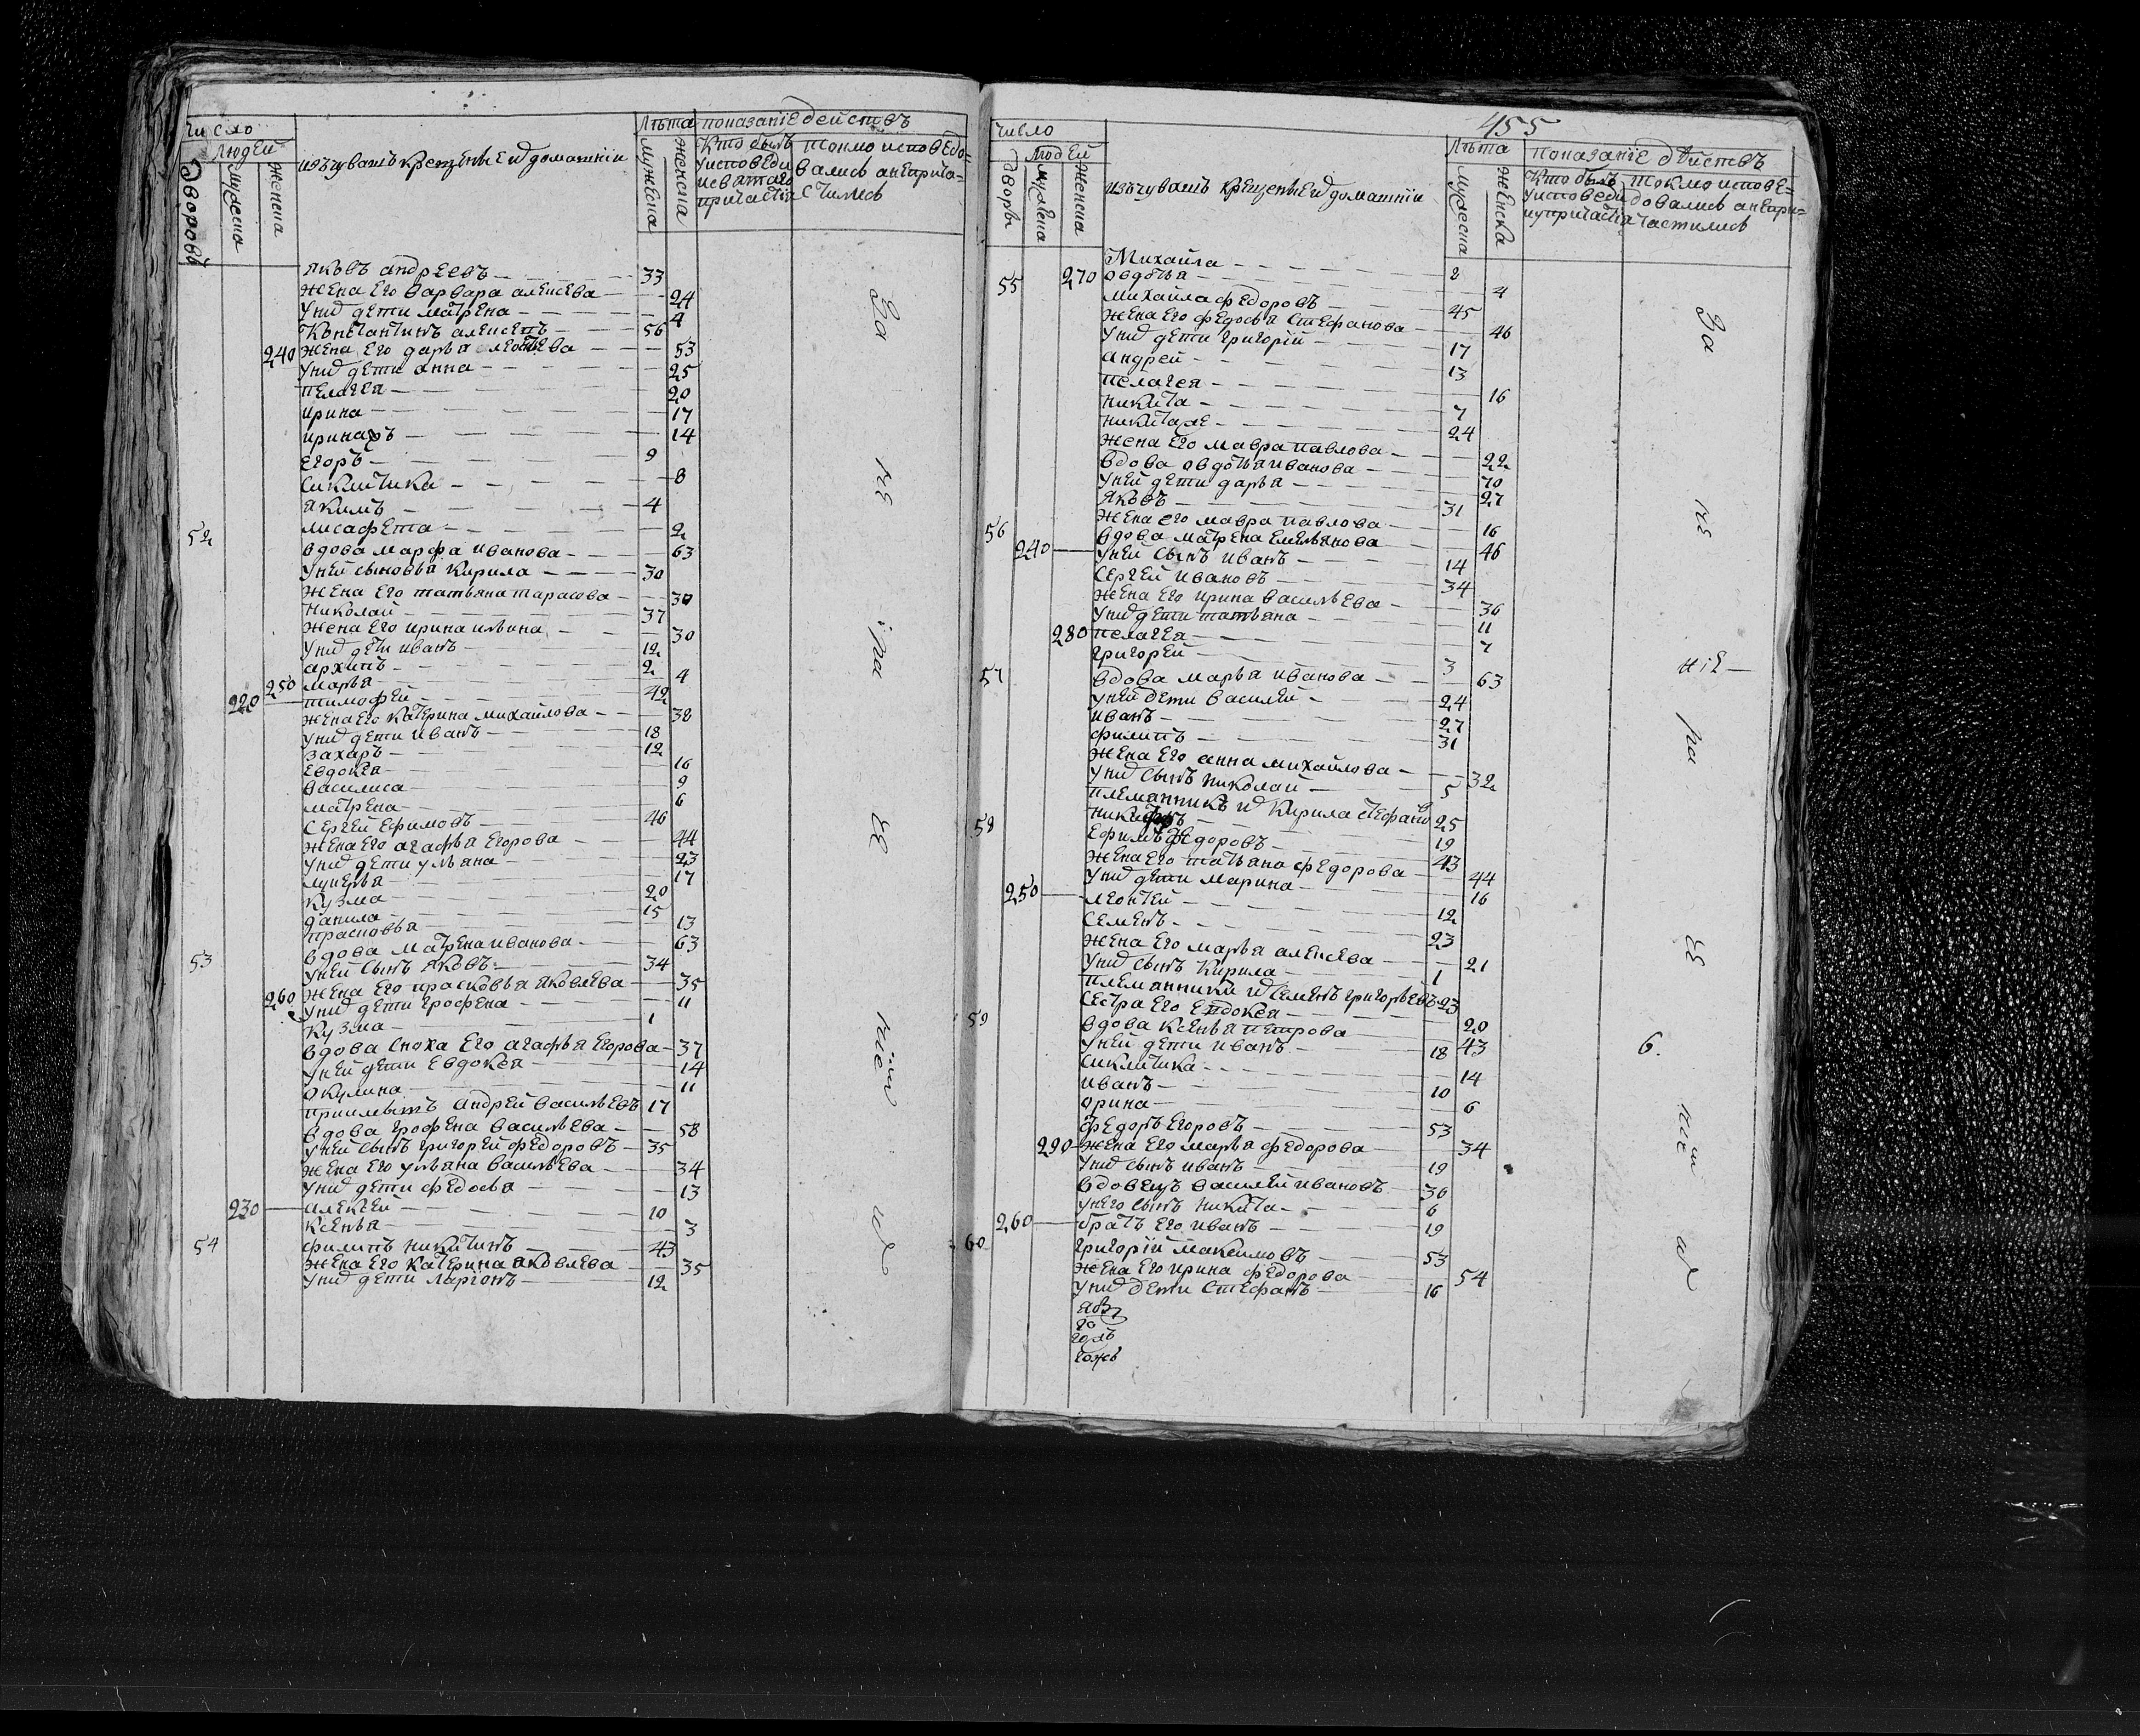 Число
Людей
Дворовъ
Мужеска
Женска
изъчувашъ крещеные ид домашнiи
Лѣта
Мужеска
Женска
показанiе действъ
Кто былъ
токмо исповедо-
вались анепричас=
стились
Якѡвъ андреевъ 33
жена его варвара алексева 24
унид дети матрена 4
Константинъ алексеевъ 56
240 жена его дарья леонтьева 53
унид дети анна 25
пелагея 20
ирина 17
иринаръ 14
егоръ 9
сиклитика 8
якимъ 4
лисафета 2
52 вдова марфа иванова 63
уней сыновья Кирила 30
жена его татьяна тарасова 30
николай 37
жена его ирина ильина 30
унид дети иванъ 12
архипъ 2
250 марья 4
220 тимофей 42
жена его катерина михайлова 38
унид дети иванъ 18
захаръ 12
евдокея 16
василиса 9
матрена 6
Сергей Ефимовъ 46
жена его агафья егорова 44
унид дети ульяна 23
лукерья 17
Кузма 20
данила 15
прасковья 13
вдова матрена иванова 63
53 уней сынъ яковъ 34
жена его прасковья яковлева 35
260 унид дети грофена 11
Кузма 1
вдова сноха его агафья егорова 37
уней дети евдокея 14
окулина 11
приимышъ андрей васильевъ 17
вдова грофена васильева 58
уней сынъ григорей федоровъ 35
жена его ульяна васильева 34
унид дети федосья 13
230 алексей 10
Ксенья 3
54 филипъ никитинъ 43
жена его катерина яковлева 35
унид дети ларiонъ 12
За
не
ра
ѣ
нiем
ид
455
Число
Людей
Дворы
Мужеска
Женска
изъчувашъ крещеные ид домашнiи
Лѣта
Мужеска
Женска
показанiе дѣйствъ
Кто былъ
токмо испове=
довались анепри=
частились
Михайла 2
270 овдотья 4
55 михайла федоровъ 45
жена его федосья стефанова 46
унид дети григорiй 17
андрей 13
пелагея 16
никита 7
никитаже 24
жена его мавра павлова 22
вдова овдотья иванова 70
уней дети дарья 27
якѡвъ 31
жена его мавра павлова 16
56 вдова матрена емельянова 46
240 уней сынъ иванъ 14
Сергей ивановъ 34
жена его ирина васильева 36
унид дети татьяна 11
280 пелагея 7
григорей 3
57 вдова марья иванова 63
уней дети василей 24
иванъ 27
филипъ 31
жена его анна михайлова 32
унид сынъ николай 5
племянникъ ид Кирила стефанов 25
19
58 ефимъ федоровъ 43
жена его татьяна федорова 44
унид дети марина 16
250 леонтей 12
Семенъ 23
жена его марья алексева 21
унид сынъ Кирила 1
племянники ид Семенъ григорьевъ 23
Сестра его евдокея 20
59 вдова Ксенья петрова 43
уней дети иванъ 18
сиклитика 14
иванъ 10
орина 6
федоръ егоровъ 53
290 жена его марья федорова 34
унид сынъ иванъ 19
вдовецъ василей ивановъ 36
унего сынъ никита 6
260 братъ его иванъ 19
60 григорiй максимовъ 53
жена его ирина федорова 54
унид дети стефанъ 16
За
не
нiе
ра
ѣ
6.
нiем
ид